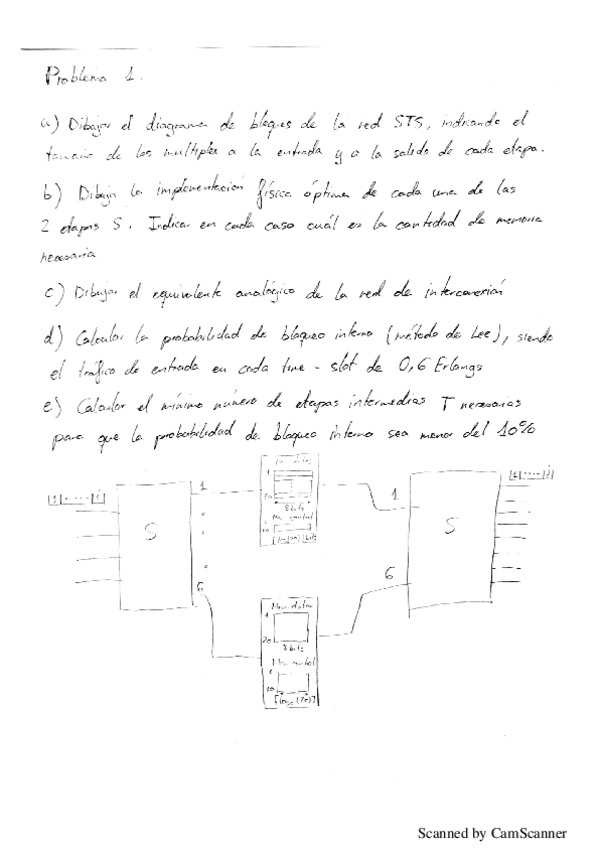 Problema 1.
a) Dibujar el diagrama de bloques de la red STS, indicando el
tamaño de los multiplex a la entrada y a la salida de cada etapa.
b) Dibujar la implementación física óptima de cada una de las
2 etapas S. Indicar en cada caso cuál es la cantidad de memoria
necesaria
c) Dibujar el equivalente analógico de la red de interconexión
d) Calcular la probabilidad de bloqueo interno (método de Lee), siendo
el tráfico de entrada en cada time-slot de 0,6 Erlangs
e) Calcular el mínimo número de etapas intermedias T necesarias
para que la probabilidad de bloqueo interno sea menor del 10%
1
S
6
1
20
8 bits
Mem control
1
S
6
Mem datos
1
20
8 bits
Mem control
20
Scanned by CamScanner